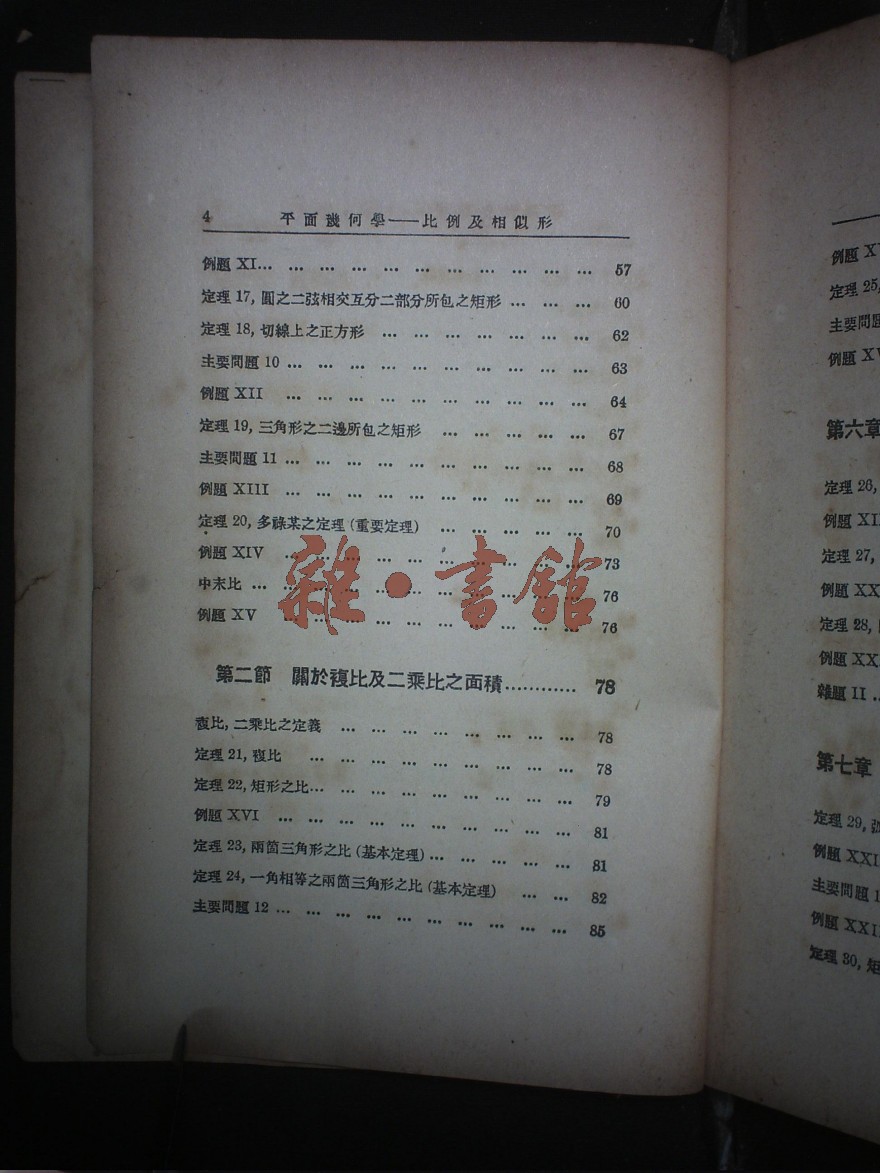 4 平面幾何學——比例及相似形
例題 XI... ... ... ... ... ... ... ... ... ... ... 57
定理 17, 圓之二弦相交互分二部分所包之矩形 ... ... ... 60
定理 18, 切線上之正方形 ... ... ... ... ... ... ... 62
主要問題 10 ... ... ... ... ... ... ... ... ... ... 63
例題 XII ... ... ... ... ... ... ... ... ... ... 64
定理 19, 三角形之二邊所包之矩形 ... ... ... ... ... 67
主要問題 11 ... ... ... ... ... ... ... ... ... ... 68
例題 XIII ... ... ... ... ... ... ... ... ... ... 69
定理 20, 多祿某之定理 (重要定理) ... ... ... ... ... 70
例題 XIV ... ... ... ... ... ... ... ... ... ... 73
中末比 ... ... ... ... ... ... ... ... ... ... ... 76
例題 XV ... ... ... ... ... ... ... ... ... ... 76
雜·書館
第二節 關於複比及二乘比之面積............ 78
複比, 二乘比之定義 ... ... ... ... ... ... ... ... 78
定理 21, 複比 ... ... ... ... ... ... ... ... ... 78
定理 22, 矩形之比... ... ... ... ... ... ... ... ... 79
例題 XVI ... ... ... ... ... ... ... ... ... ... 81
定理 23, 兩箇三角形之比 (基本定理) ... ... ... ... ... 81
定理 24, 一角相等之兩箇三角形之比 (基本定理) ... ... 82
主要問題 12 ... ... ... ... ... ... ... ... ... ... 85
定理 25,
主要問題
第六章
定理 26,
定理 27,
例題 XX
定理 28,
例題 XX
雜題 II ..
第七章
定理 29,
例題 XXI
主要問題 1
例題 XXII
定理 30, 矩